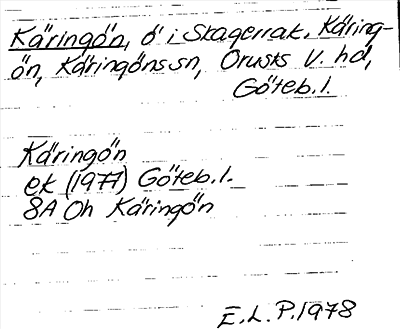 Käringön, ö i Skagerrak. Käring-
ön, Käringöns sn, Orusts V. hd,
Göteb. l.
Käringön
ek (1977) Göteb. l.
8A Oh Käringön
E.L.P. 1978